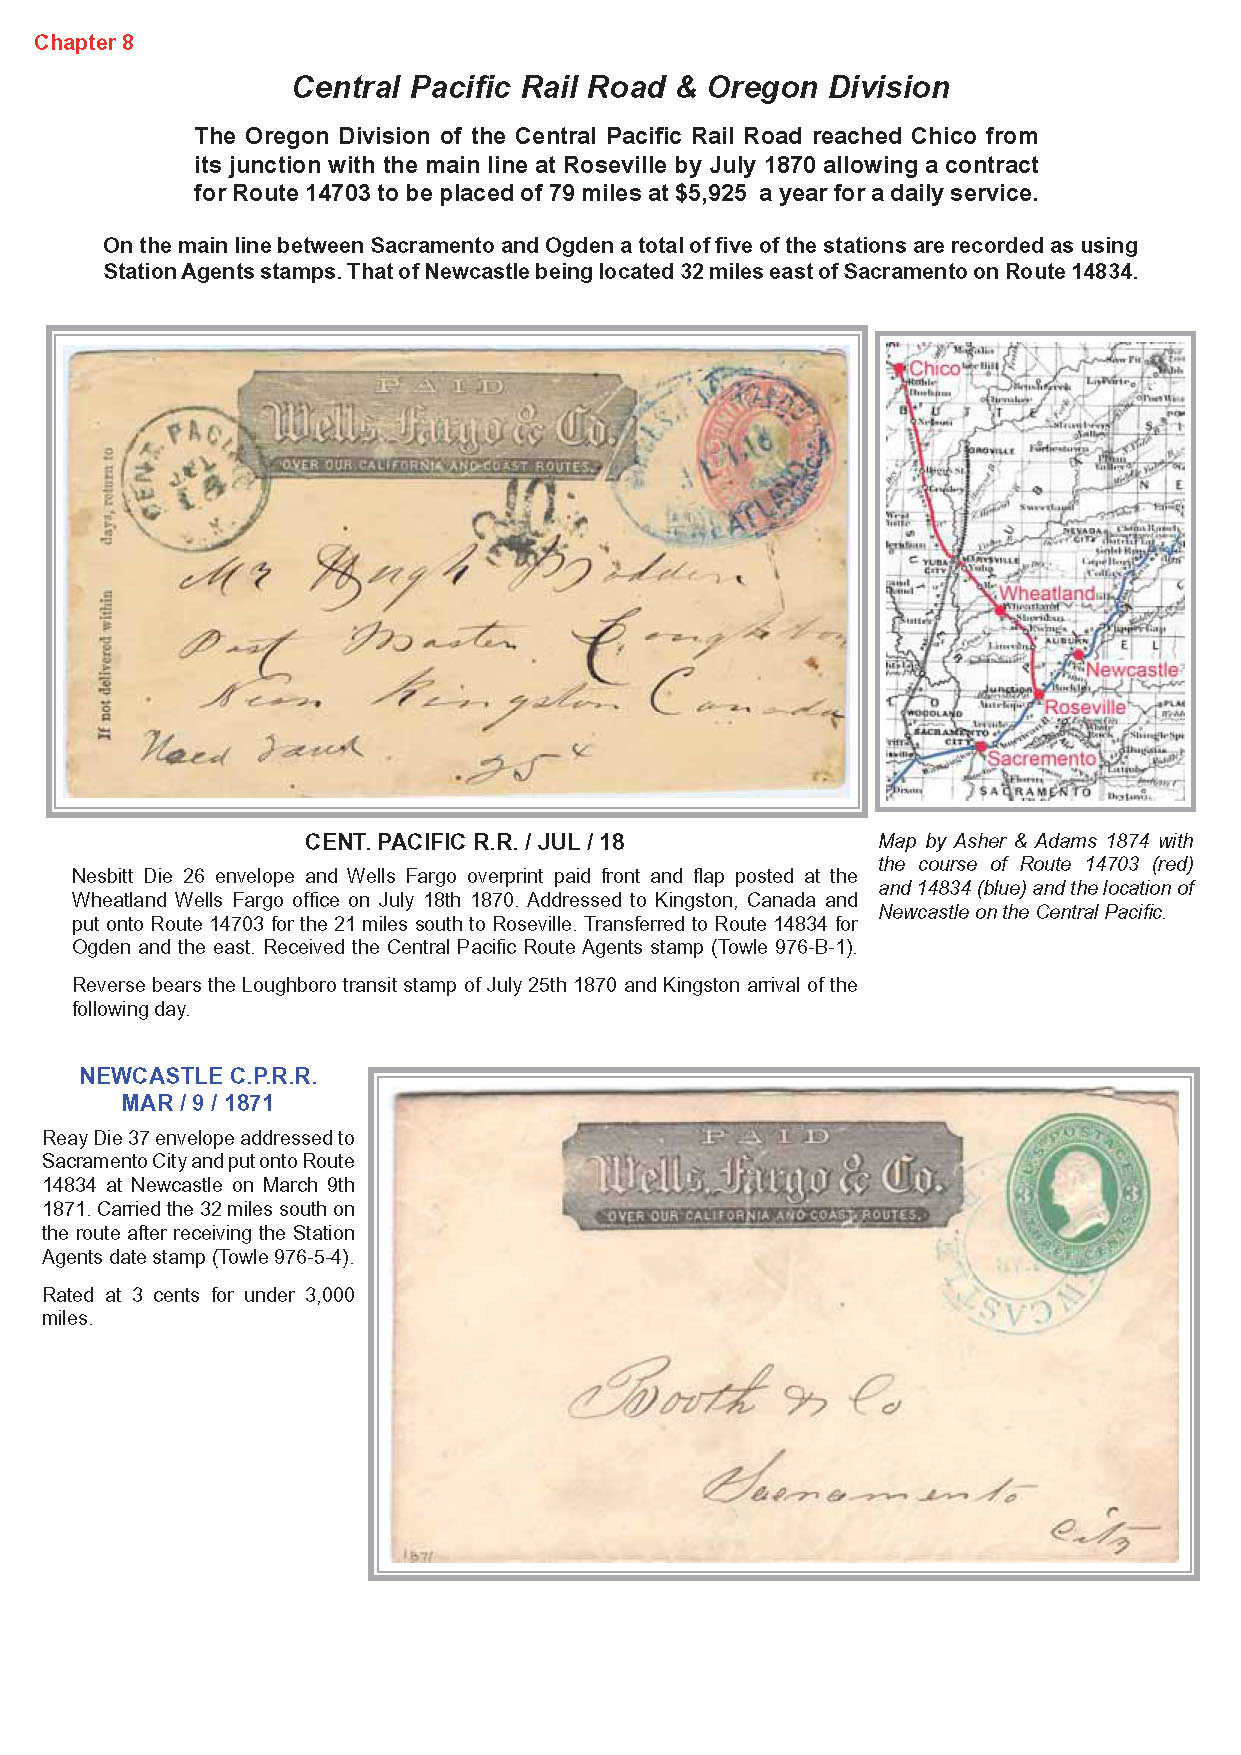 Chapter 8
Central Pacific Rail Road & Oregon Division
The Oregon Division of the Central Pacific Rail Road reached Chico from
its junction with the main line at Roseville by July 1870 allowing a contract
for Route 14703 to be placed of 79 miles at $5,925 a year for a daily service.
On the main line between Sacramento and Ogden a total of five of the stations are recorded as using
Station Agents stamps. That of Newcastle being located 32 miles east of Sacramento on Route 14834.
PAID
Wells, Fargo & Co.
OVER OUR CALIFORNIA AND COAST ROUTES.
CENT. PACIFIC
JUL
18
10
If not delivered within days, return to
Mr Hugh Madden
Post Master
Near Kingston Canada
25
Chico
OROVILLE
YUBA CITY
MARYSVILLE
Wheatland
Wheatland
Sheridan
Lincoln
AUBURN
Newcastle
Junction
Rocklin
Antelope
Roseville
WOODLAND
SACRAMENTO CITY
Sacremento
Dixon
SACRAMENTO
CENT. PACIFIC R.R. / JUL / 18
Nesbitt Die 26 envelope and Wells Fargo overprint paid front and flap posted at the
Wheatland Wells Fargo office on July 18th 1870. Addressed to Kingston, Canada and
put onto Route 14703 for the 21 miles south to Roseville. Transferred to Route 14834 for
Ogden and the east. Received the Central Pacific Route Agents stamp (Towle 976-B-1).
Reverse bears the Loughboro transit stamp of July 25th 1870 and Kingston arrival of the
following day.
Map by Asher & Adams 1874 with
the course of Route 14703 (red)
and 14834 (blue) and the location of
Newcastle on the Central Pacific.
NEWCASTLE C.P.R.R.
MAR / 9 / 1871
Reay Die 37 envelope addressed to
Sacramento City and put onto Route
14834 at Newcastle on March 9th
1871. Carried the 32 miles south on
the route after receiving the Station
Agents date stamp (Towle 976-5-4).
Rated at 3 cents for under 3,000
miles.
PAID
Wells, Fargo & Co.
OVER OUR CALIFORNIA AND COAST ROUTES.
U.S. POSTAGE
3 3
THREE CENTS
Booth & Co
Sacramento
City
1871